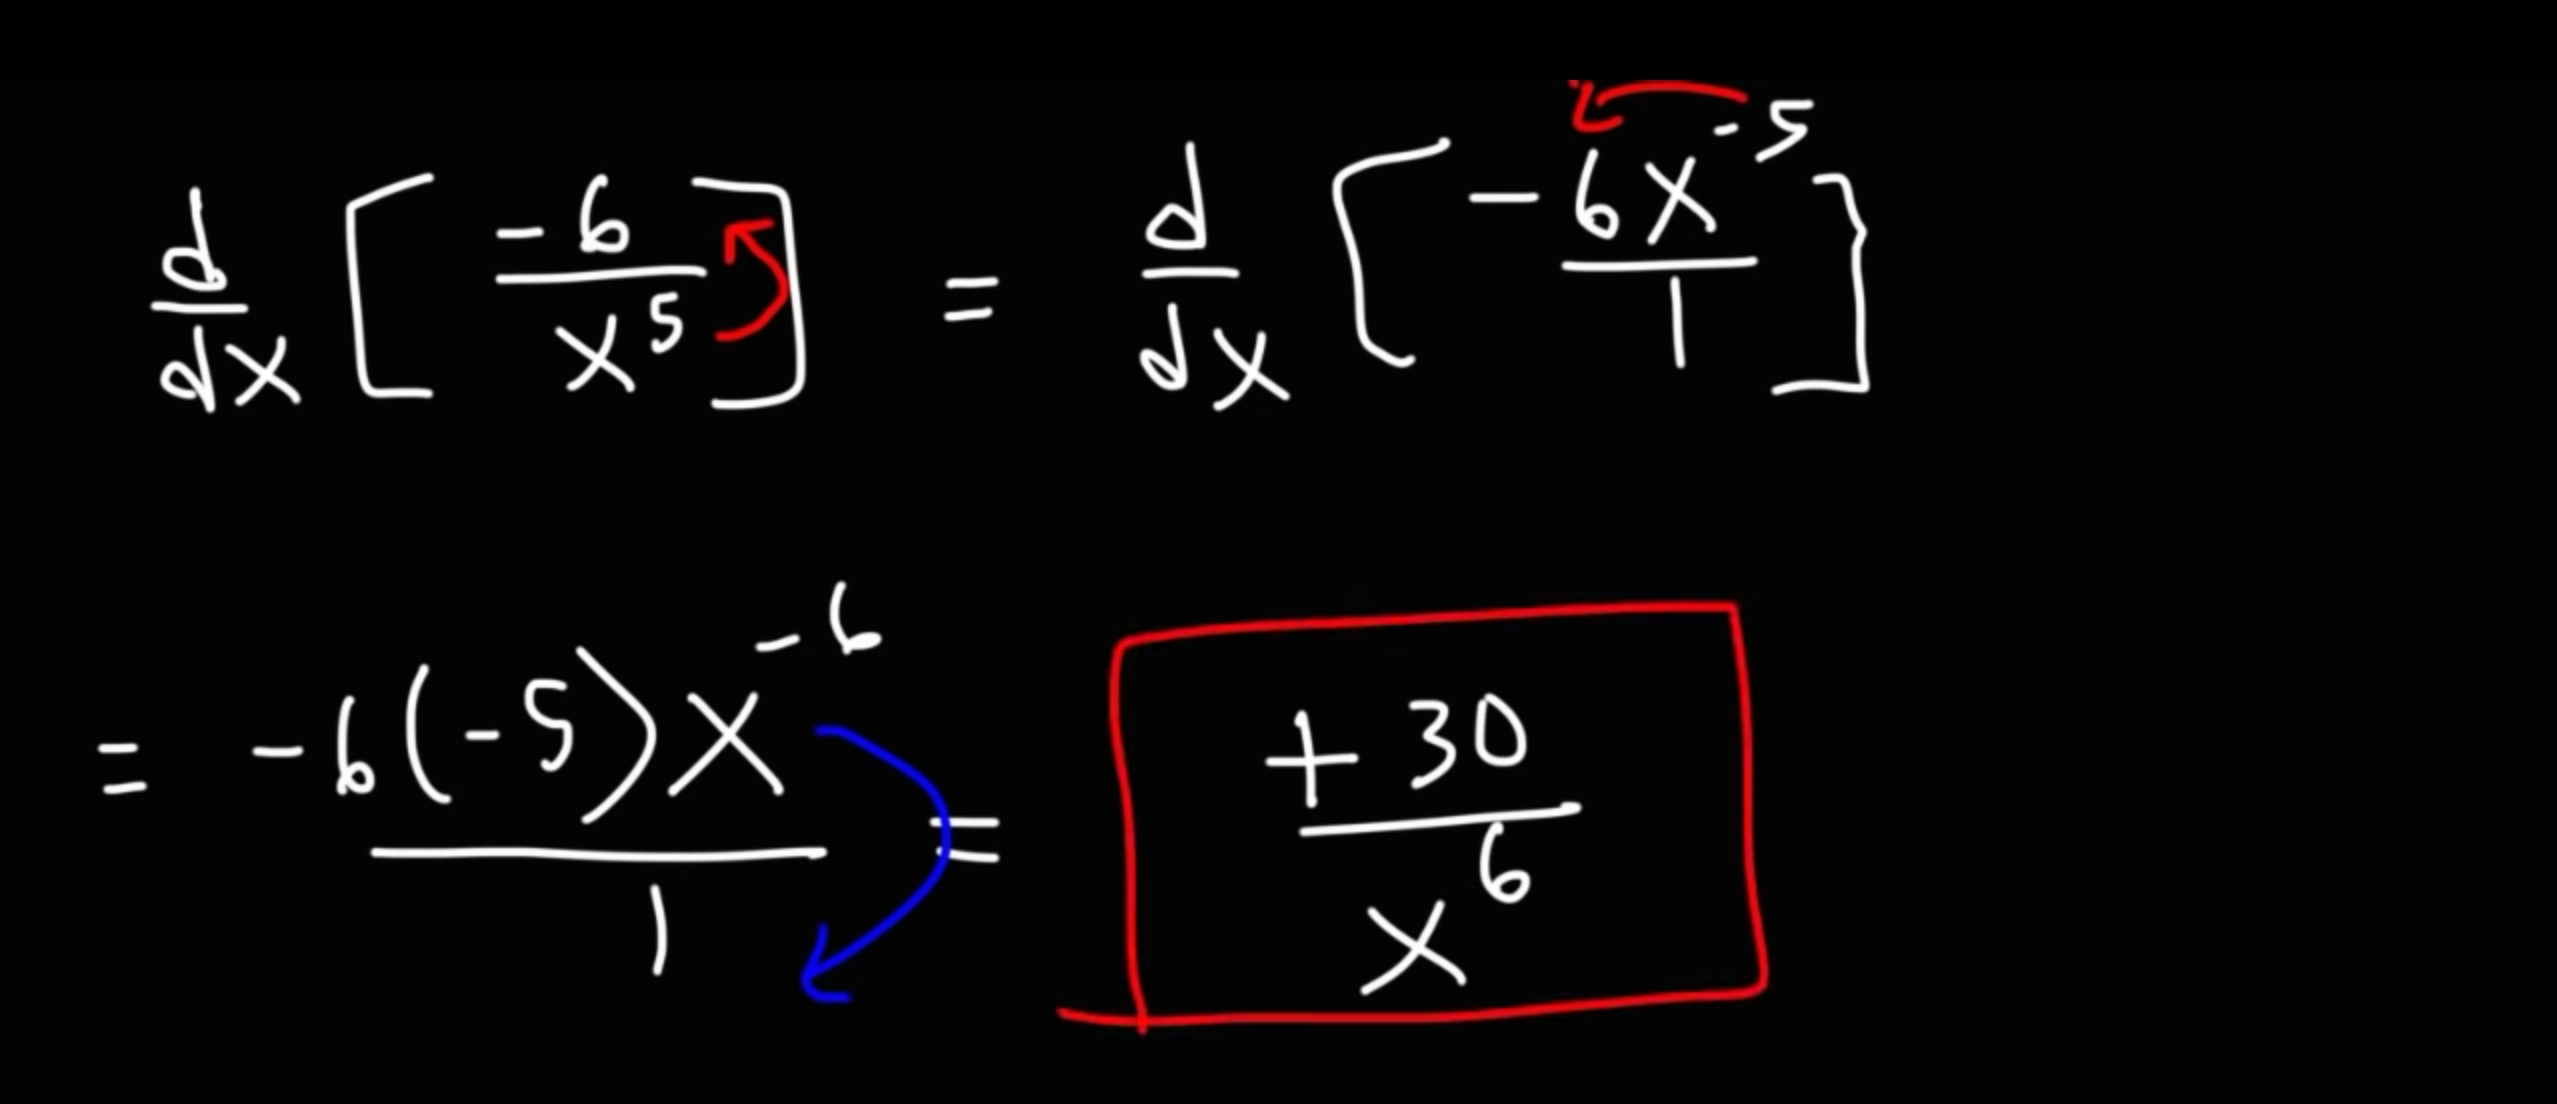 d/dx [ -6/x^5 ] = d/dx [ -6x^-5/1 ]
= -6(-5)x^-6/1 = +30/x^6